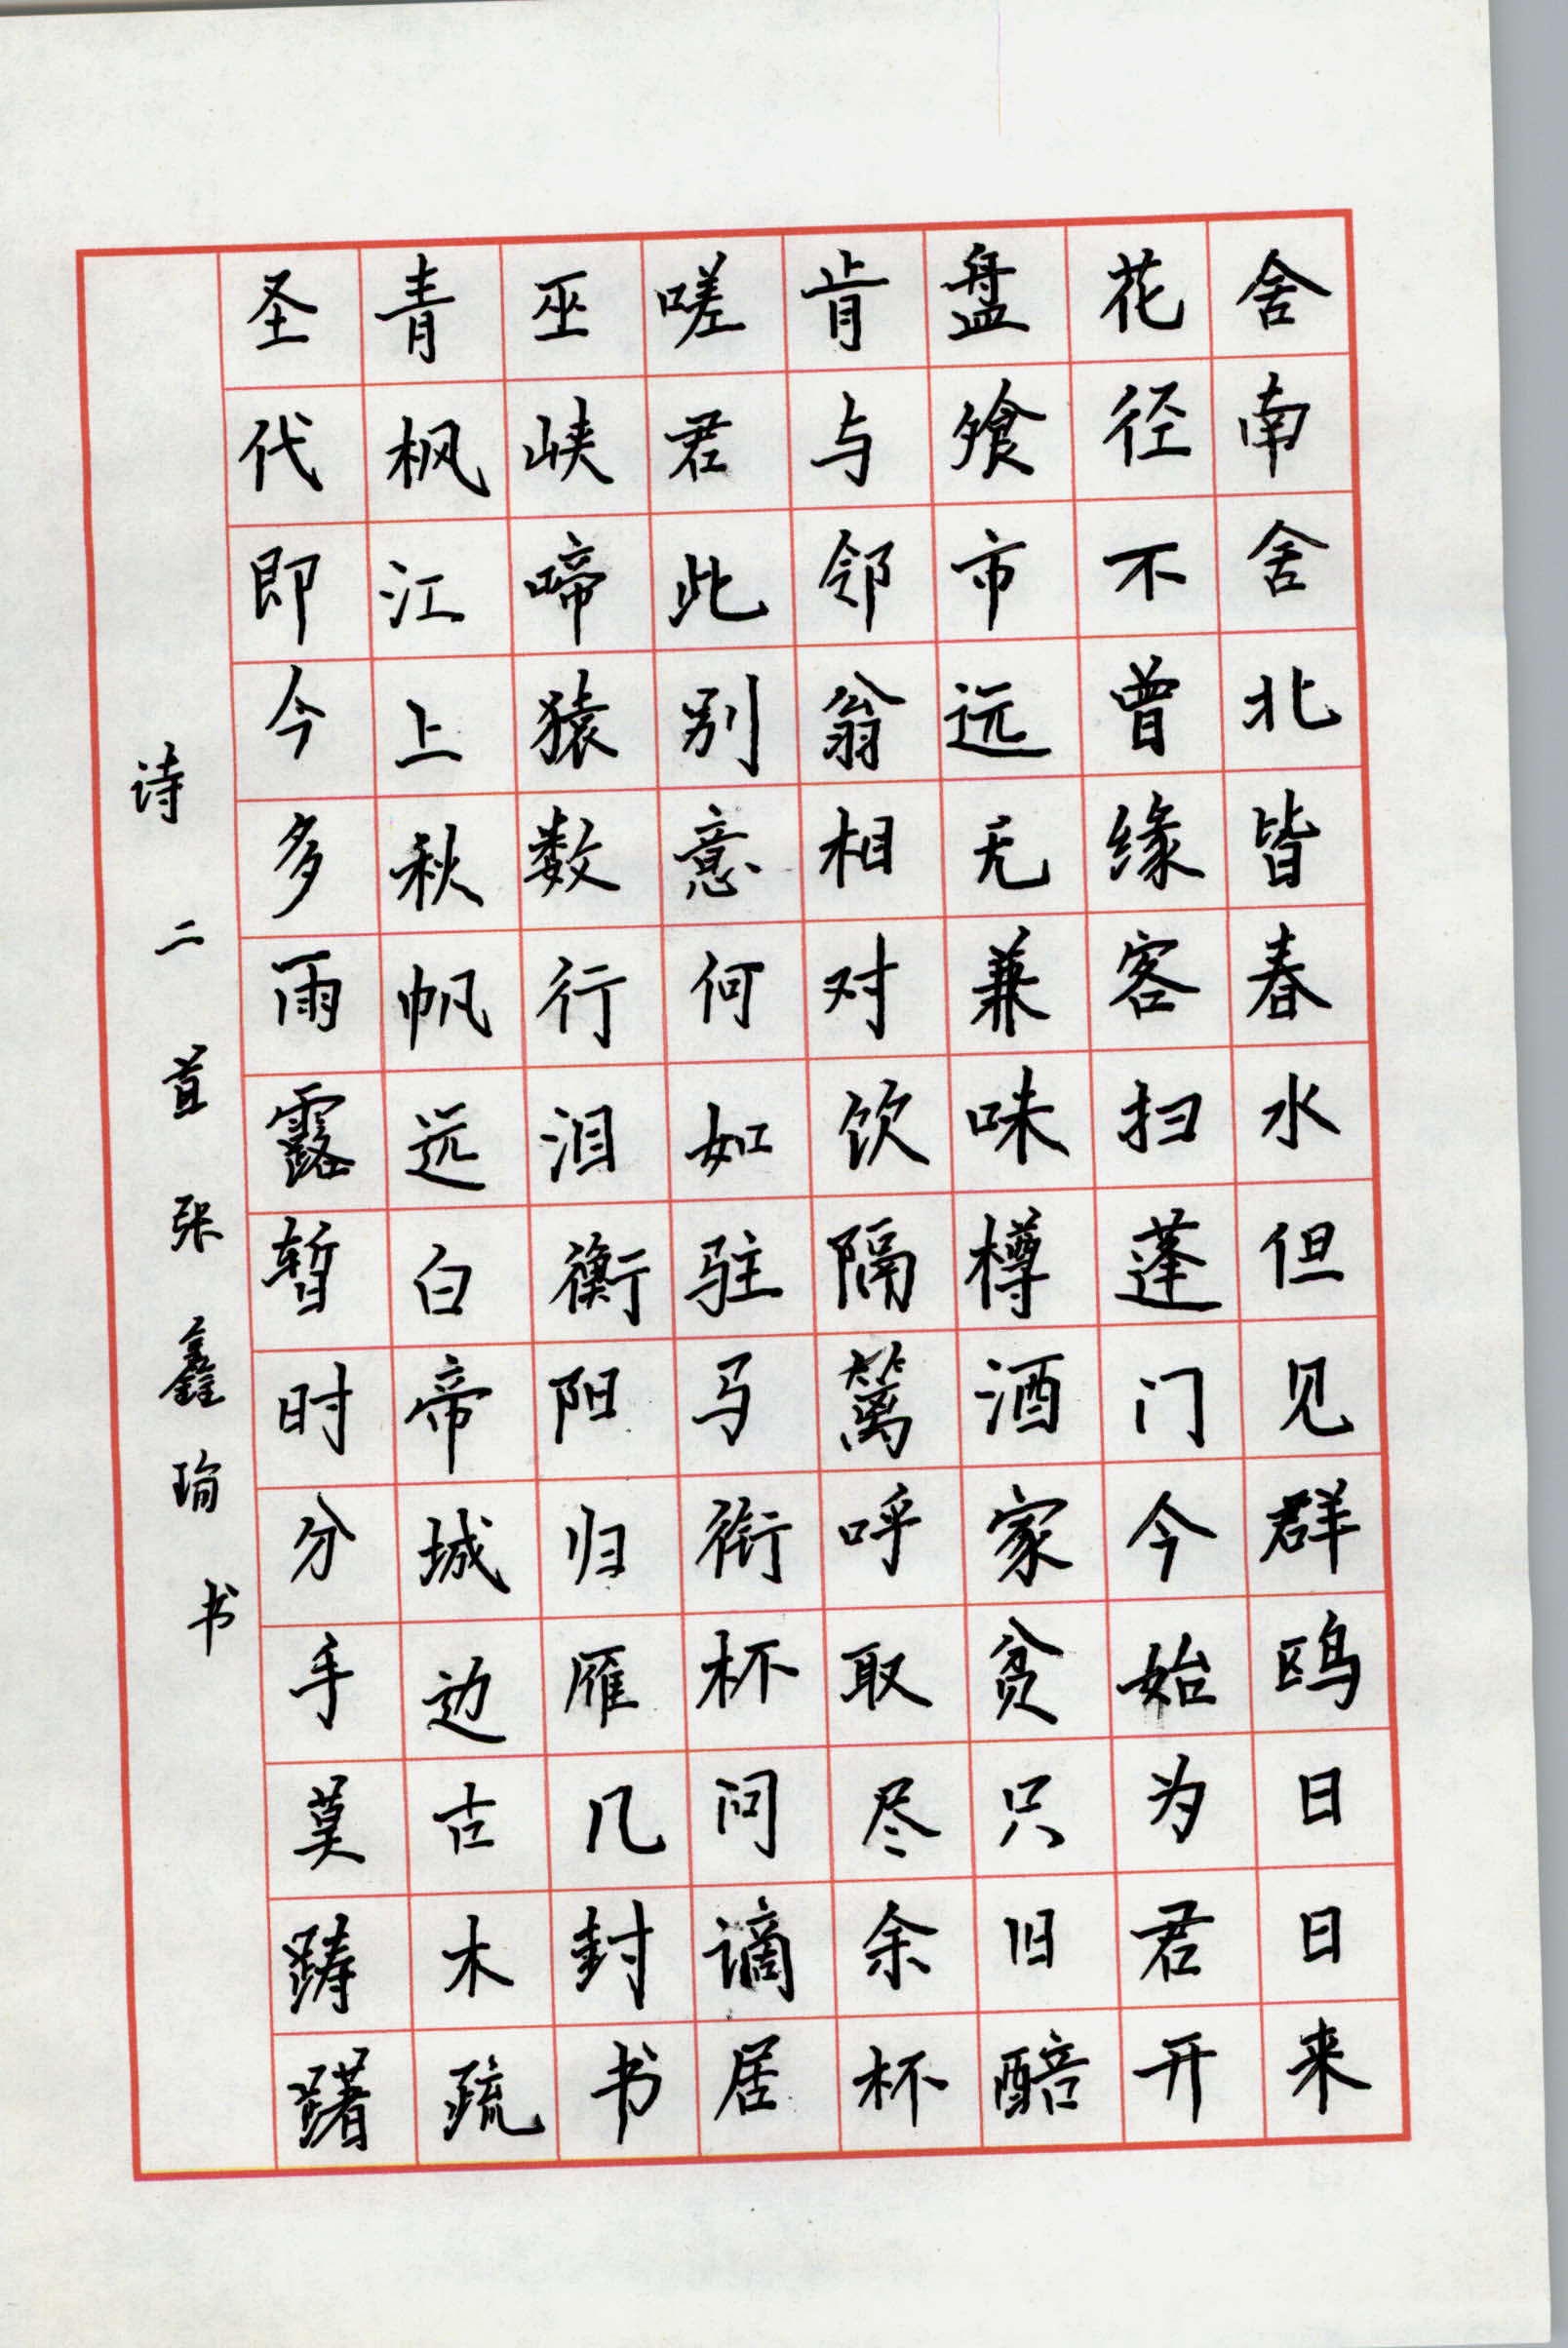 舍南舍北皆春水但见群鸥日日来
花径不曾缘客扫蓬门今始为君开
盘飧市远无兼味樽酒家贫只旧醅
肯与邻翁相对饮隔篱呼取尽余杯
嗟君此别意何如驻马衔杯问谪居
巫峡啼猿数行泪衡阳归雁几封书
青枫江上秋帆远白帝城边古木疏
圣代即今多雨露暂时分手莫踌躇
诗二首张鑫瑜书